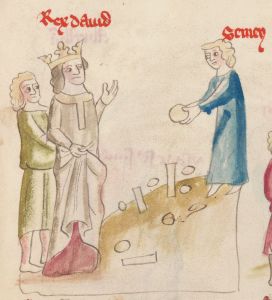 Rex dauid
Semey